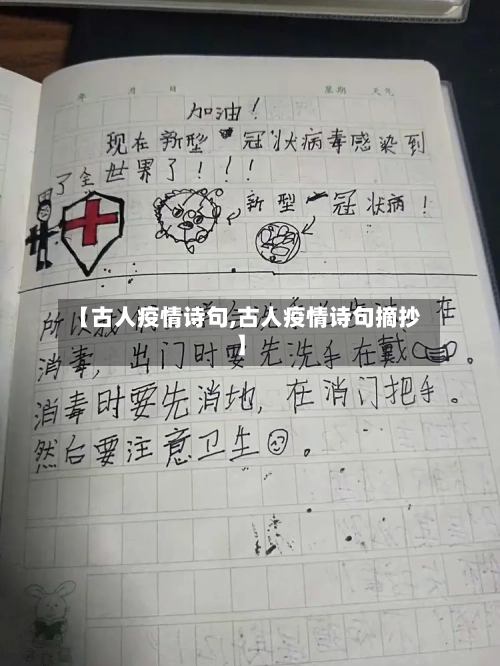 年 月 日 星期 天气
加油！
现在新型冠状病毒感染到
了全世界了！！！
新型冠状病！
【古人疫情诗句,古人疫情诗句摘抄
】
所以 在
消毒，出门时要先洗手在戴 。
消毒时要先消地，在消门把手。
然后要注意卫生 。